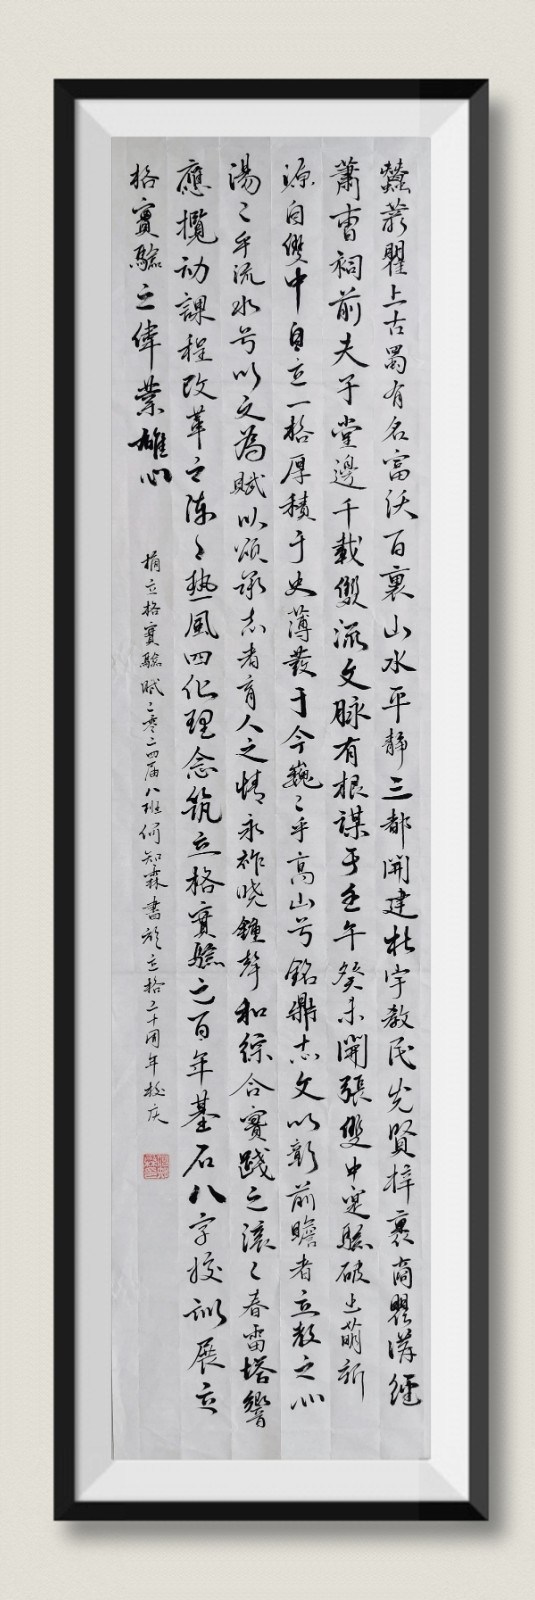 蠶叢瞿上古蜀有名富沃百裏山水平静三都開建杜宇教民先賢梓裏商瞿溝經
蕭曹祠前夫子堂邊千載雙流文脉有根謀于壬午癸未開張雙中實驗破土萌新
源自雙中自立一格厚積于史薄發于今巍〻乎高山兮銘鼎志文以彰前瞻者立教之心
湯〻乎流水兮以文為賦以頌承志者育人之情永祚晓鐘聲和綜合實踐之滚〻春雷塔響
應攬动課程改革之陈〻热風四化理念筑立格實驗之百年基石八字校训展立
格實驗之偉業雄心
立格實驗賦二零二四届八班何知霖書於立格二十周年校庆